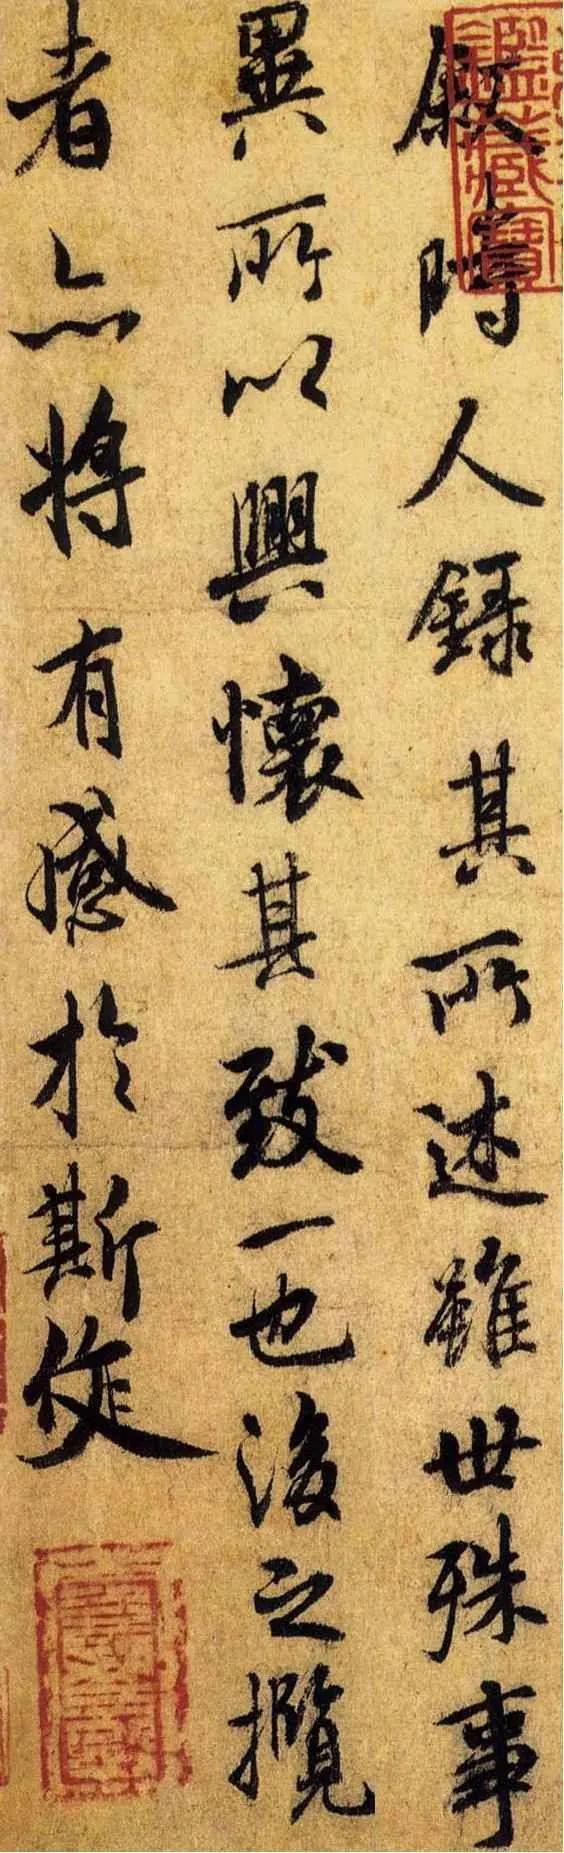 敘時人錄其所述雖世殊事
異所以興懷其致一也後之攬
者亦將有感於斯文
鑑藏寶